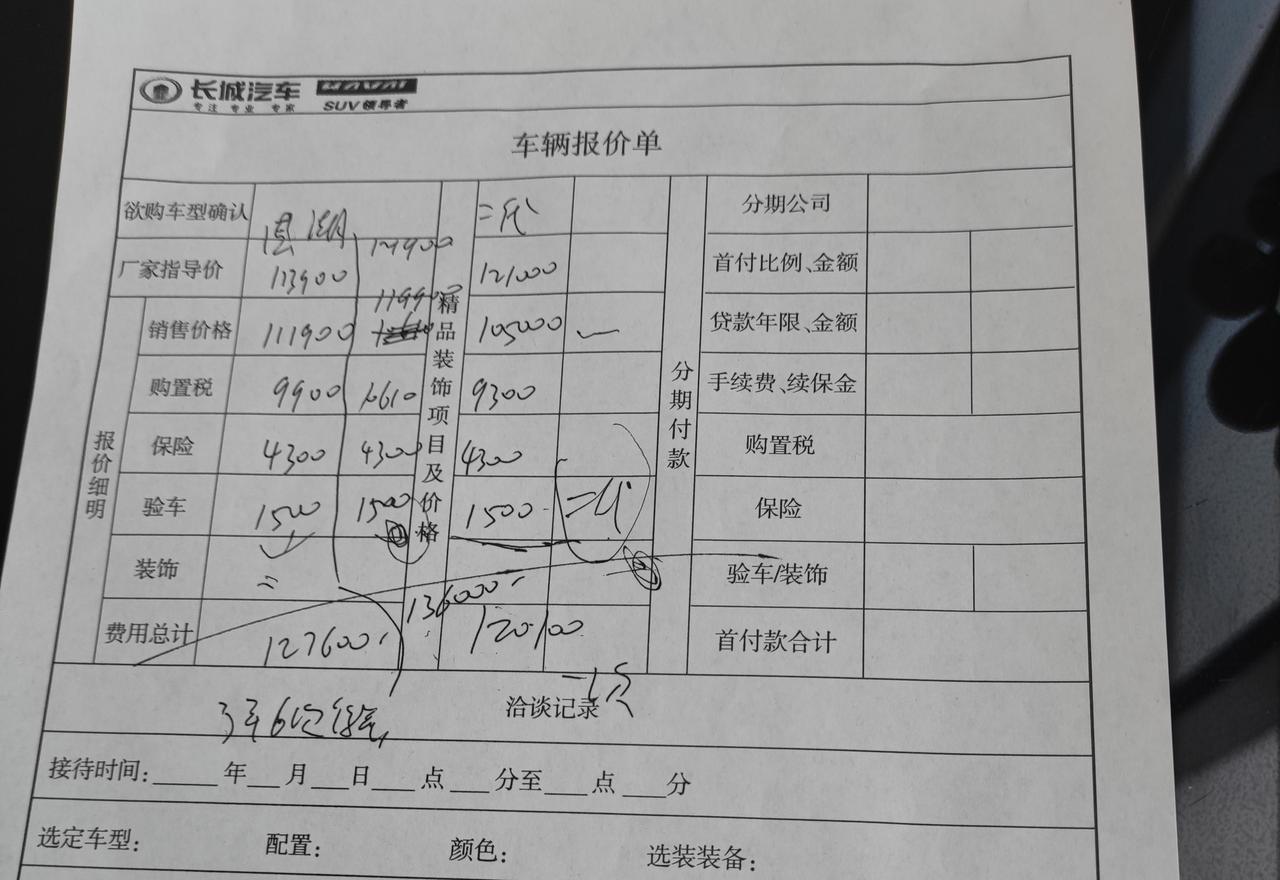 长城汽车 HAVAL
专注 专业 专家 SUV领导者
车辆报价单
欲购车型确认 国潮 二代 分期公司
厂家指导价 113900 121000 首付比例、金额
销售价格 111900 105000 贷款年限、金额
购置税 9900 9300 手续费、续保金
保险 4300 4300 4300 购置税
验车 1500 1500 1500 二代 保险
装饰 验车/装饰
费用总计 127600 136000 120100 首付款合计
报价细明
精品装饰项目及价格
分期付款
洽谈记录
接待时间:____年__月__日__点__分至__点__分
选定车型: 配置: 颜色: 选装装备: